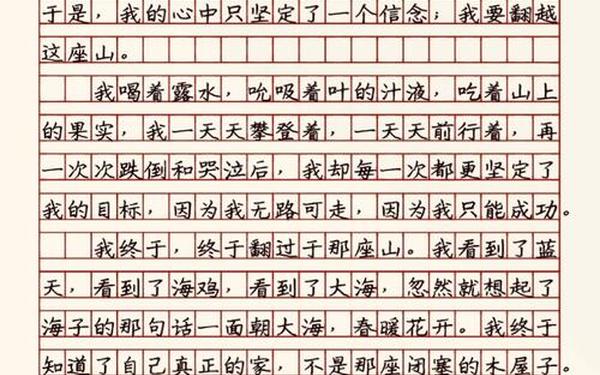 于是，我的心中只坚定了一个信念；我要翻越
这座山。
我喝着露水，吮吸着叶的汁液，吃着山上
的果实，我一天天攀登着，一天天前行着，再
一次次跌倒和哭泣后，我却每一次都更坚定了
我的目标，因为我无路可走，因为我只能成功。
我终于，终于翻过于那座山。我看到了蓝
天，看到了海鸡，看到了大海，忽然就想起了
海子的那句话一面朝大海，春暖花开。我终于
知道了自己真正的家，不是那座闭塞的木屋子，